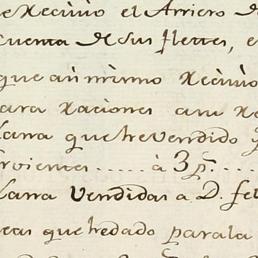 execiuio el Arriero de
cuenta de sus fletes, e
que aim mismo xeciuio
para xaciones a mi xe
Lana que he vendido y
rvientes ..... à 3 p.s
Lana Vendidas a D. fel
etas que hedado para la